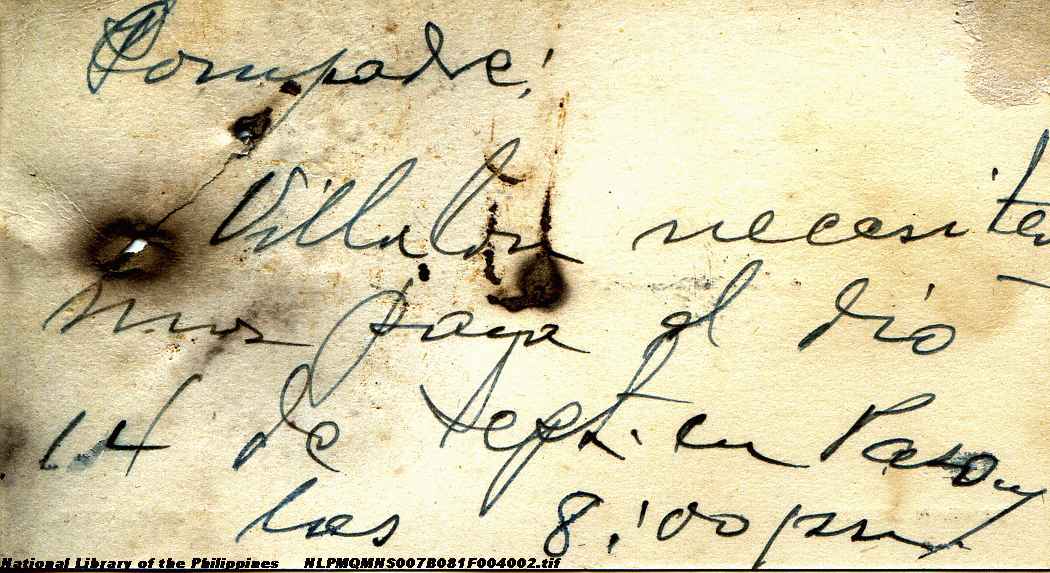 Compadre;
Villalon necesita
mos para el dia
14 de Sept. en Pasay
las 8:00 pm
National Library of the Philippines NLPMQMNS007B081F004002.tif